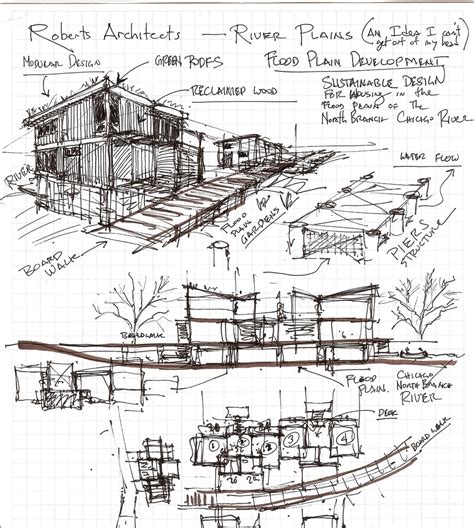 Roberts Architects — River Plains (An Idea I can't
get out of my head)
Modular Design
Green Roofs
Flood Plain Development
Reclaimed Wood
Sustainable Design
for Housing in the
Flood Plains of the
North Branch Chicago River
Water Flow
River
Board
Walk
Flood
Plain
Gardens
Piers
Structure
Boardwalk
Flood
Plain.
Chicago
North Branch
River
Deck
Board Walk
1
2
3
4